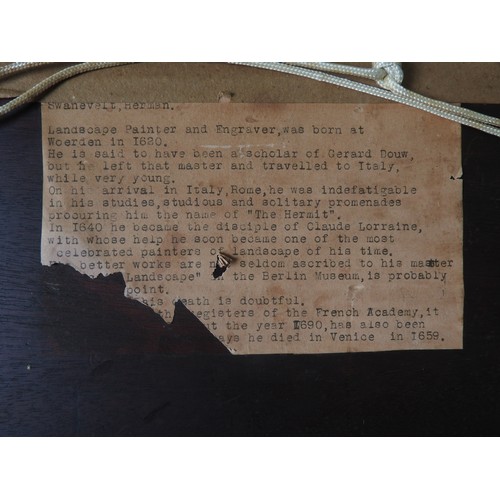 Swanevelt,Herman.
Landscape Painter and Engraver,was born at
Woerden in I620.
He is said to have been a scholar of Gerard Douw,
but he left that master and travelled to Italy,
while very young.
On his arrival in Italy,Rome,he was indefatigable
in his studies,studious and solitary promenades
procuring him the name of "The Hermit".
In I640 he became the disciple of Claude Lorraine,
with whose help he soon became one of the most
celebrated painters of landscape of his time.
better works are seldom ascribed to his master
Landscape" in the Berlin Museum,is probably
point.
his death is doubtful.
registers of the French Academy,it
the year I690,has also been
he died in Venice in I659.